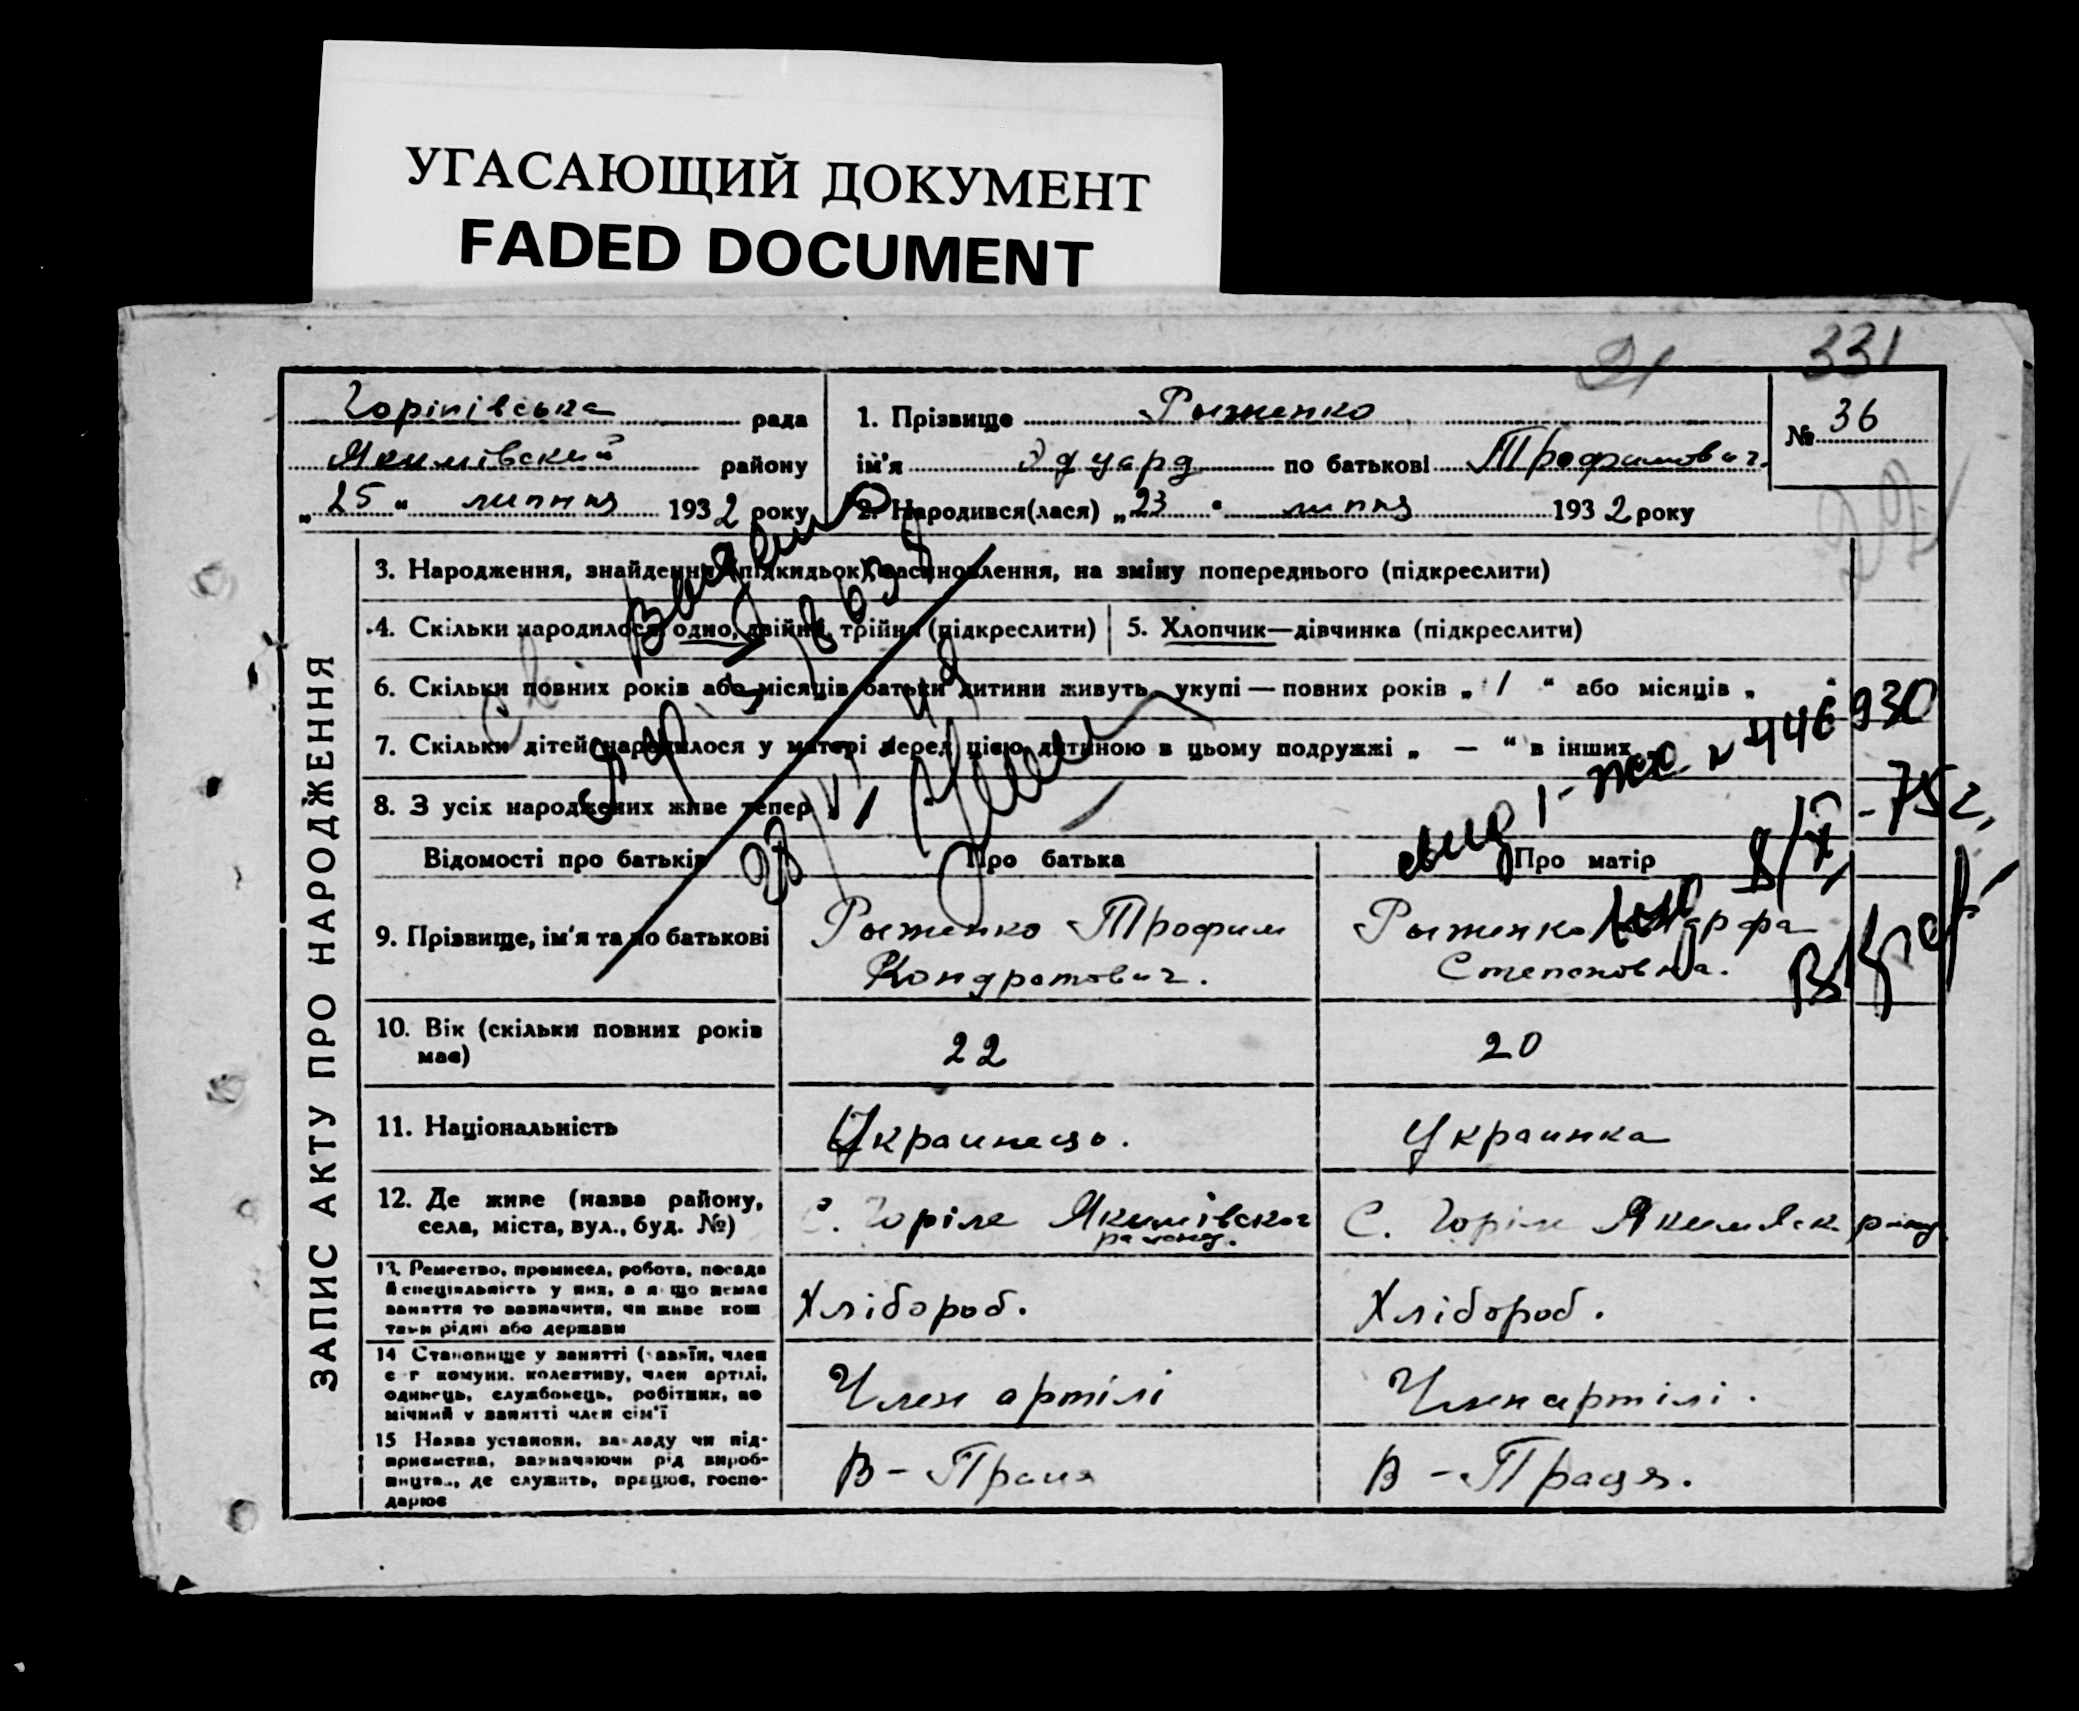 УГАСАЮЩИЙ ДОКУМЕНТ
FADED DOCUMENT
331
21
Горілівська рада
Якимівский району
„25“ липня 1932 року
1. Прізвище Рыженко
ім'я Эдуард по батькові Трофимович.
№ 36
2. Народився(лася) „23“ липня 1932 року
ЗАПИС АКТУ ПРО НАРОДЖЕННЯ
3. Народження, знайдення (підкидьок), засиновлення, на зміну попереднього (підкреслити)
4. Скільки народилося: одно, двійня, трійня (підкреслити)
5. Хлопчик—дівчинка (підкреслити)
6. Скільки повних років або місяців батьки дитини живуть укупі — повних років „ 1 “ або місяців „ “
7. Скільки дітей народилося у матері перед цією дитиною в цьому подружжі „ — “ в інших
8. З усіх народжених живе тепер „ 1
446930
- 75 г.
Відомості про батьків
Про батька
Про матір
9. Прізвище, ім'я та по батькові
Рыженко Трофим
Кондратович.
Рыженко
Степоновна.
10. Вік (скільки повних років
має)
22
20
11. Національність
Украинець.
Украинка
12. Де живе (назва району,
села, міста, вул., буд. №)
С. Горіле Якимівског
району.
С. Горіле Якимівск району
13. Ремество, промисел, робота, посада
й спеціяльність у них, а якщо немає
заняття то зазначити, чи живе кош
тами рідні або держави
Хлібороб.
Хлібороб.
14 Становище у занятті (хазяїн, член
с-г комуни, колективу, член артілі,
одинець, службовець, робітник, по
мічний у занятті член сім'ї
Член артілі
Член артілі.
15 Назва установи, закладу чи під-
приємства, зазначаючи рід вироб-
ництва, де служить, працює, госпо-
дарює
В - Праця
В - Праця.